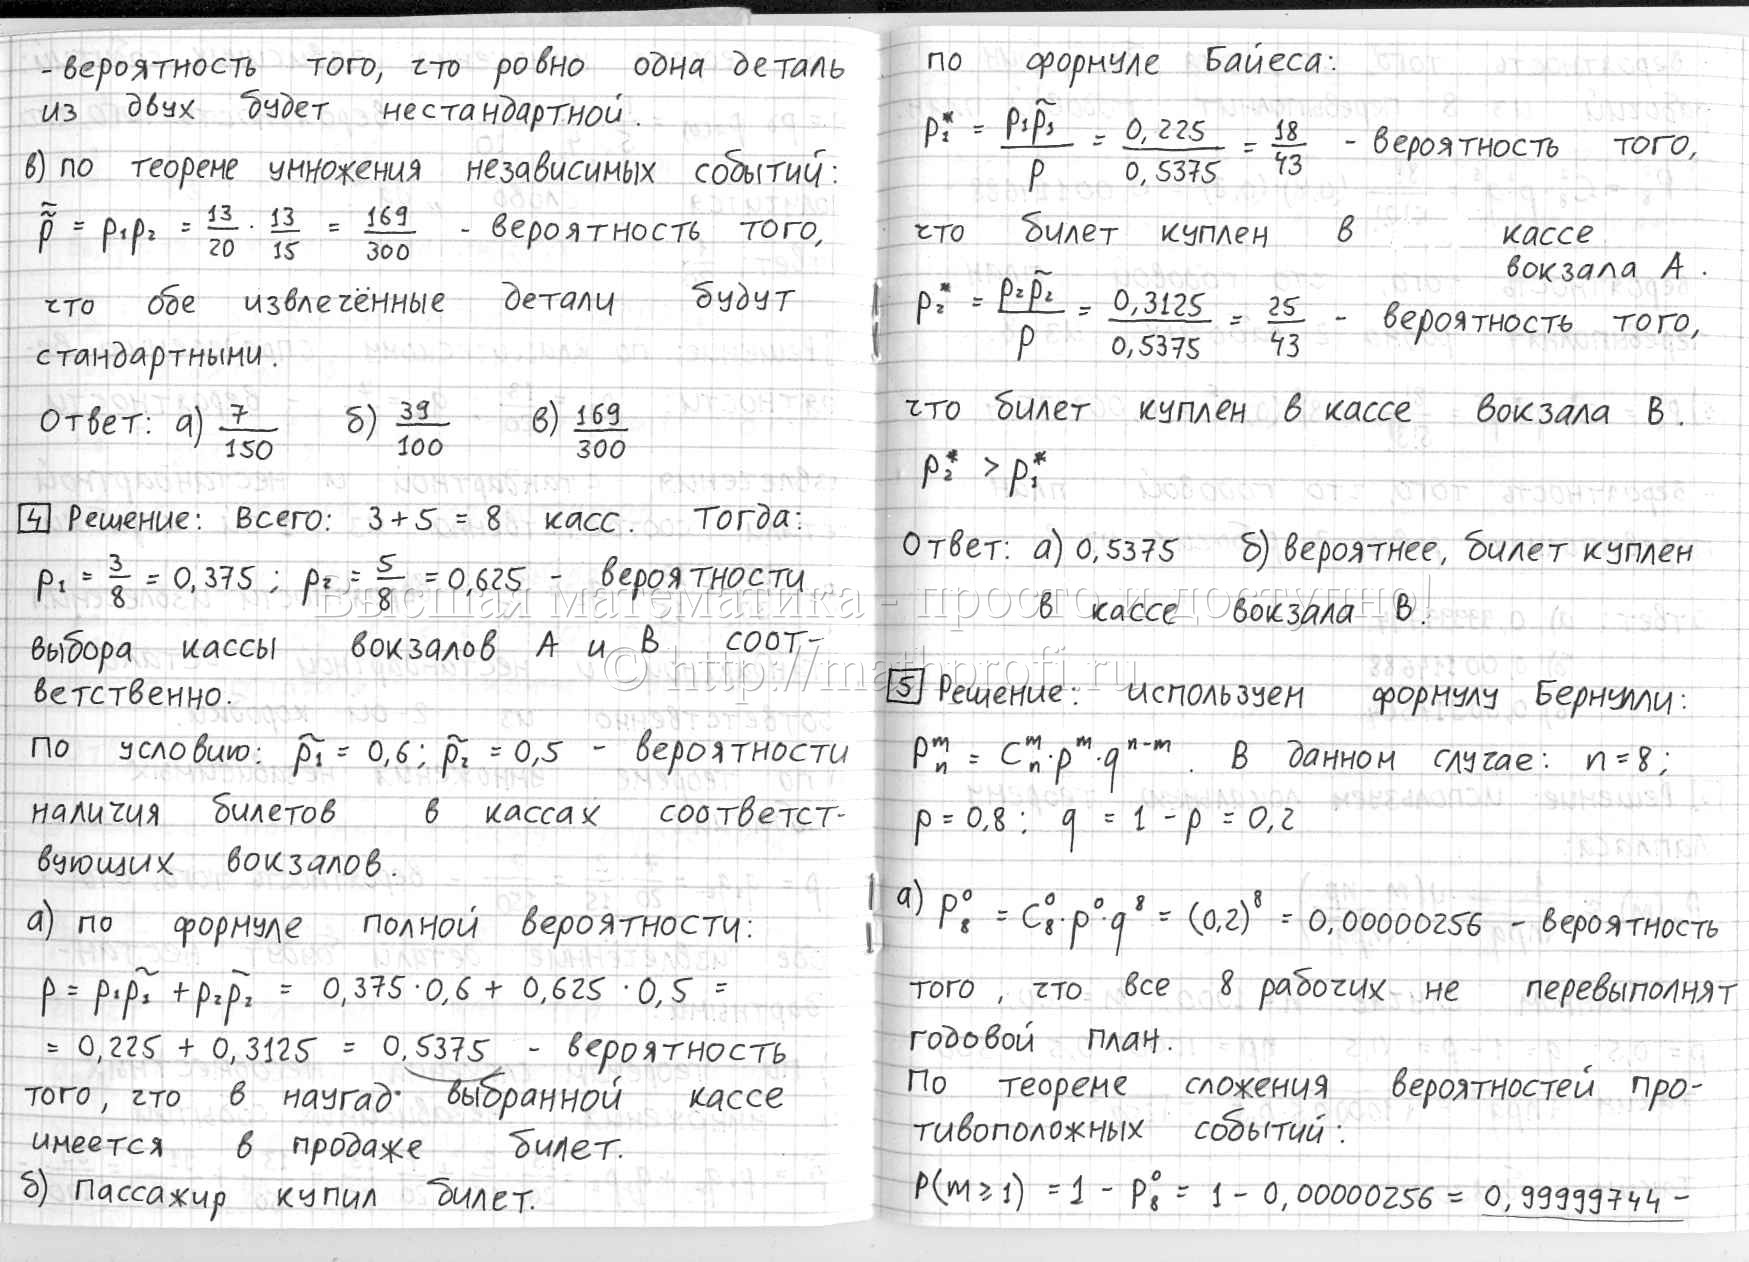 - вероятность того, что ровно одна деталь
из двух будет нестандартной.
в) по теореме умножения независимых событий:
p̃̃ = p₁p₂ = 13/20 · 13/15 = 169/300 - вероятность того,
что обе извлечённые детали будут
стандартными.
Ответ: а) 7/150 б) 39/100 в) 169/300
4 Решение: Всего: 3+5 = 8 касс. Тогда:
p₁ = 3/8 = 0,375; p₂ = 5/8 = 0,625 - вероятности
выбора кассы вокзалов А и В соот-
ветственно.
По условию: p̃₁ = 0,6; p̃₂ = 0,5 - вероятности
наличия билетов в кассах соответст-
вующих вокзалов.
а) по формуле полной вероятности:
p = p₁p̃₁ + p₂p̃₂ = 0,375 · 0,6 + 0,625 · 0,5 =
= 0,225 + 0,3125 = 0,5375 - вероятность
того, что в наугад выбранной кассе
имеется в продаже билет.
б) Пассажир купил билет.
по формуле Байеса:
p₁* = p₁p̃₁/p = 0,225/0,5375 = 18/43 - вероятность того,
что билет куплен в кассе
вокзала А.
p₂* = p₂p̃₂/p = 0,3125/0,5375 = 25/43 - вероятность того,
что билет куплен в кассе вокзала В.
p₂* > p₁*
Ответ: а) 0,5375 б) вероятнее, билет куплен
в кассе вокзала В.
Высшая математика - просто и доступно!
© http://mathprofi.ru
5 Решение: используем формулу Бернулли:
Pₙᵐ = Cₙᵐ · pᵐ · qⁿ⁻ᵐ. В данном случае: n = 8;
p = 0,8; q = 1 - p = 0,2
а) P₈⁰ = C₈⁰ · p⁰ · q⁸ = (0,2)⁸ = 0,00000256 - вероятность
того, что все 8 рабочих не перевыполнят
годовой план.
По теореме сложения вероятностей про-
тивоположных событий:
P(m ≥ 1) = 1 - P₈⁰ = 1 - 0,00000256 = 0,99999744 -